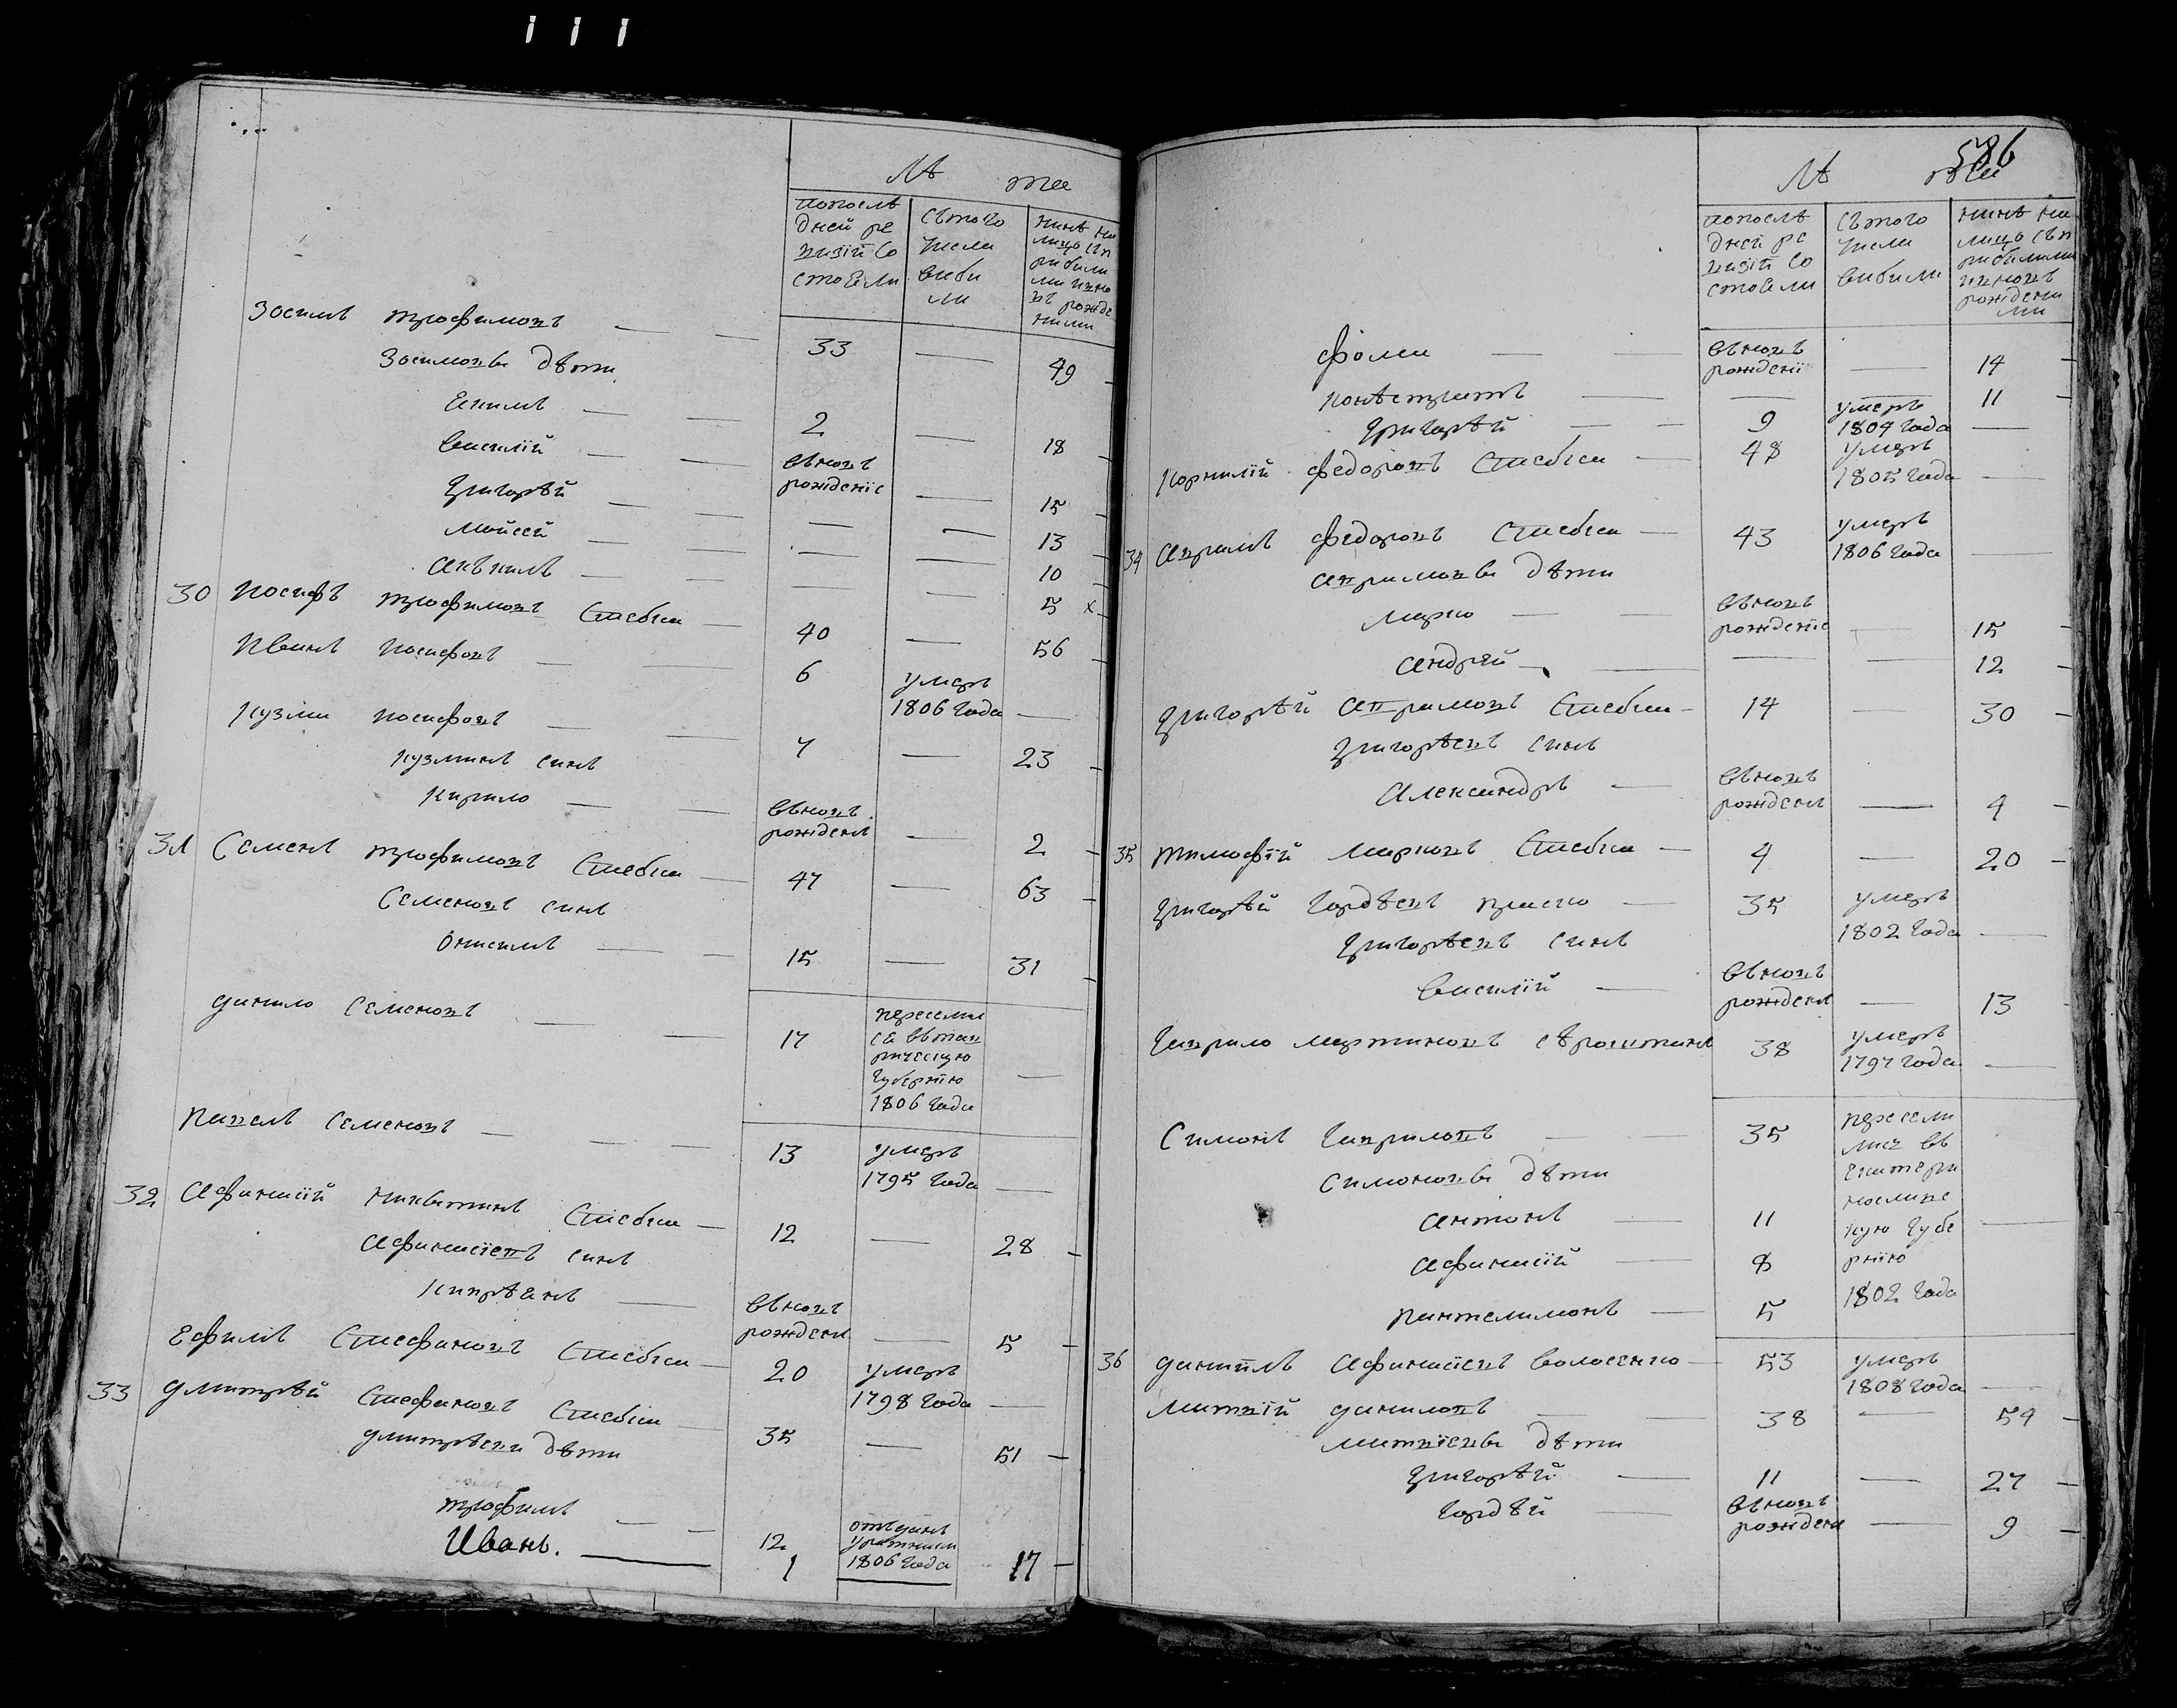 Лѣ та
попослѣ
дней ре
визїи со
стояли
съ того
числа
выбы
ли
нынѣ на
лицо съ п
рибылы
ми и вно
въ рожде
нными
Зосимъ трофимовъ — — 33 — 49 —
Зосимовы дѣти
Екимъ — — 2 — 18 —
василїй — — вьновъ
рожденїе — 15 —
григорѣй — — — — 13 —
мойсей — — — — 10 —
акъкилъ — — — — 5 х
30 иосифъ трофимовъ Слабгы — 40 — 56 —
Иванъ иосифовъ — — 6 умеръ
1806 года —
кузма иосифовъ — — 7 — 23 —
кузминъ синъ
кирило — — вьновъ
рожденъ — 2 —
31 Семенъ трофимовъ — 47 — 63 —
Семеновъ синъ
онисимъ — — 15 — 31 —
данило Семеновъ — — 17 переселил
ся въ тав
рическую
губернїю
1806 года —
павелъ семеновъ — — — 13 умеръ
1795 года —
32 Афанасїй никитинъ — 12 — 28 —
Афанасїевъ синъ
кипрѣянъ — вьновъ
рожденъ — 5 —
Ефимъ Стефановъ — 20 умеръ
1798 года —
33 дмитрѣй Стефановъ — 35 — 51 —
дмитрѣевы дѣти
трофимъ — — 12 отъданъ
1806 года
Иванъ. — 1 17 —
586
Лѣ та
попослѣ
дней ре
визїи со
стояли
съ того
числа
выбыли
нынѣ на
лицо съ п
рибылыми
и вновъ
рожденны
ми
фома — — вьновъ
рожденї — 14 —
конъстратъ — — — 11
григорѣй — — 9 умеръ
1804 года —
корнилїй федоровъ — 48 умеръ
1805 года —
34 Авраамъ федоровъ — 43 умеръ
1806 года —
аврамовы дѣти
марко — — вьновъ
рожденїе — 15 —
андрей — — — — 12 —
григорѣй аврамовъ — 14 — 30 —
григорѣевъ синъ
Александръ — вьновъ
рожденъ — 4 —
35 тимофїй марковъ — 4 — 20 —
григорѣй гордѣевъ — 35 умеръ
1802 года —
григорѣевъ синъ
василїй — вьновъ
рожденъ — 13
гаврило мартиновъ 38 умеръ
1797 года —
Симонъ гавриловъ — — 35 пересели
лис въ
екатери
нославс
кую губе
рнїю
1802 года —
симоновы дѣти
антонъ — 11
афанасїй — 8
пантелимонъ — 5
36 данїилъ афанасїевъ волосенко — 53 умеръ
1808 года —
матвїй даниловъ — — 38 — 54 —
матвїевы дѣти
григорѣй — 11 — 27 —
гордѣй — вьновъ
рожденъ — 9 —